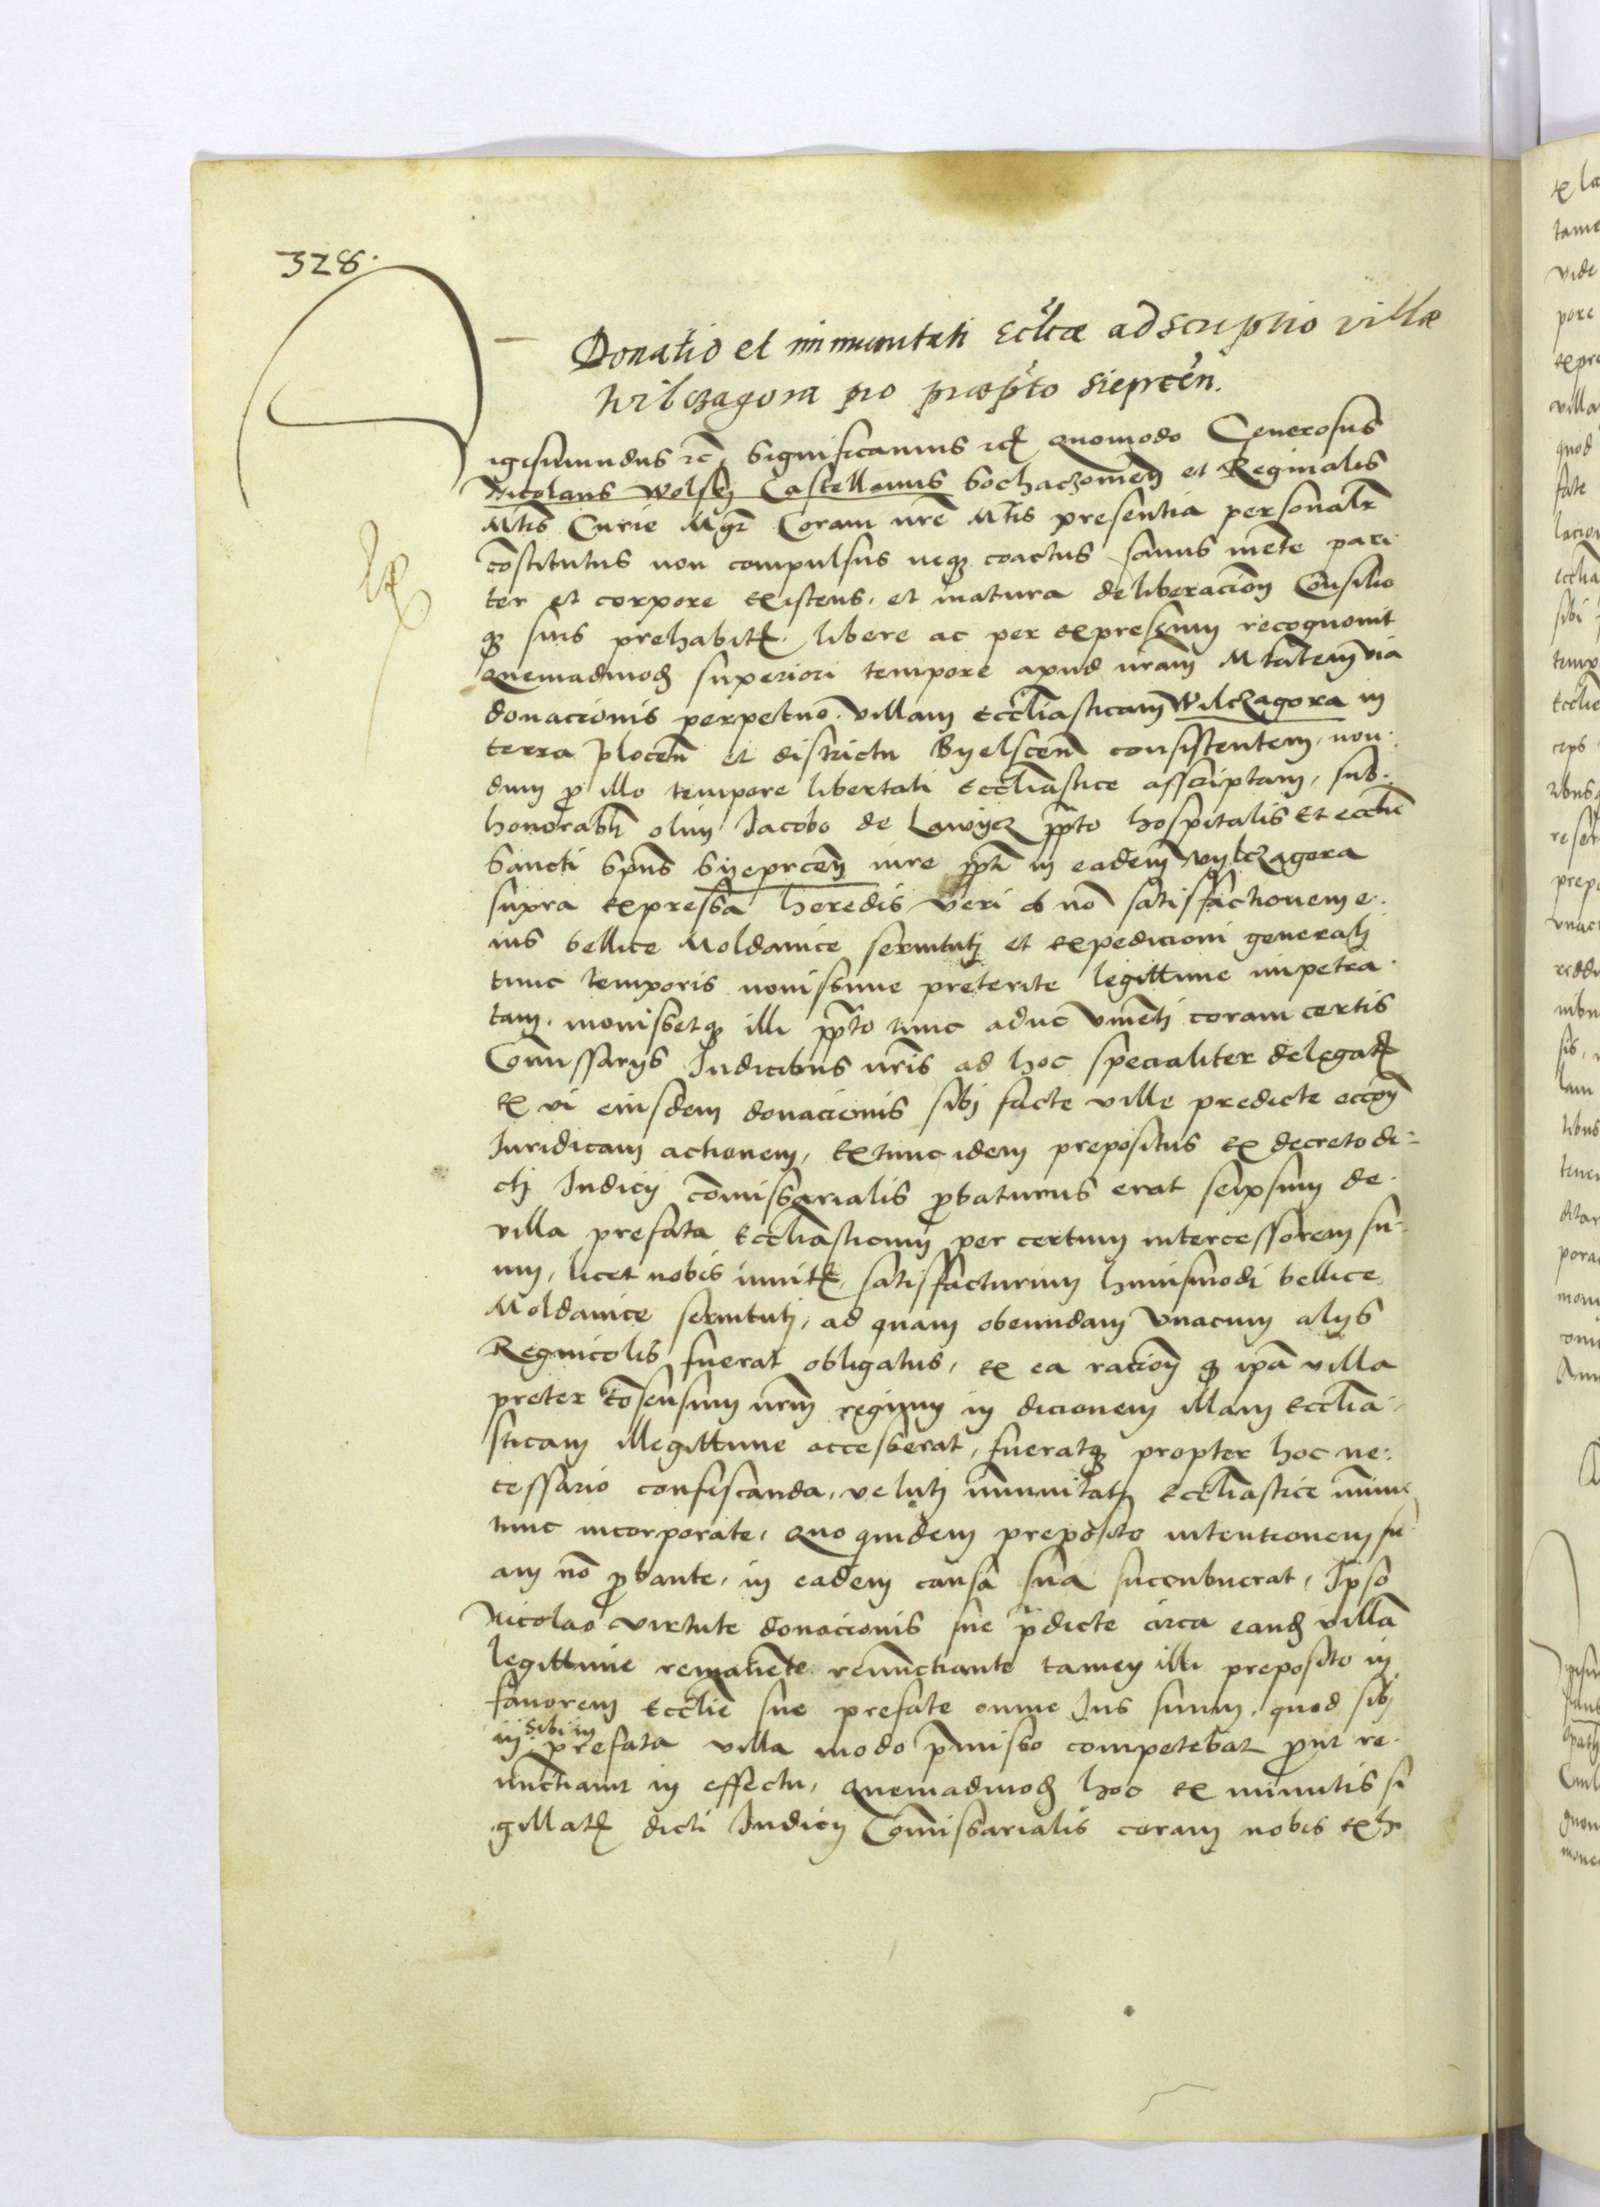 328.
Donatio et immunitati Eccl̃ae adscriptio villae
Wilczagora pro praep̃to Sieprceñ.
Sigismundus rc̃ Significamus rc̃ quomodo Generosus
Nicolaus Wolsky Castellanus Sochaczovień et Reginalis
Mtis Curie Mgr̃ Coram nr̃e Mtis presentia personalr̃
cõstitutus non compulsus neqz coactus sanus mẽte pari
ter et corpore existens, et matura deliberacioñ Consilio
qz suis prehabitis libere ac per expressum recognovit
Quemadmodũ superiori tempore apud nr̃am Mtatem via
donacionis perpetuo villam eccl̃iasticam Wilczagora in
terra Plocen̄ et districtu Byelscen̄ consistentem, non
dum p̱ illo tempore libertati eccl̃iastice asscriptam, sub
honorabl̃i olim Jacobo de Lawycz pp̃to hospitalis et eccl̃ie
Sancti Sp̃us Syeprcen̄ iure pp̃ti in eadem Wylczagora
supra expressa heredis veri ob nõ satisfactionem e
ius bellice Moldavice servituti et expedicioni generali
tunc temporis novissime preterite legittime impetra
tam, movissetqz illi pp̃to tunc adhuc viventi coram certis
Comissarijs Iudicibus nr̃is ad hoc specialiter delegatis
ex vi eiusdem donacionis sibi facte ville predicte
Iuridicam actionem, extunc idem prepositus ex decreto di-
cti Iudicij cõmissarialis p̱baturus erat seipsum de
villa prefata eccl̃iasticum per certum intercessorem su-
um, licet nobis invitis, satisfacturum huiusmodi bellice
Moldavice servituti, ad quam obeundam vnacum alijs
Regnicolis fuerat obligatus, ex ea racioñ qz ip̃a villa
preter cõsensum nr̃um regium in dicionem illam eccl̃ia-
sticam illegittime accesserat, fueratqz propter hoc ne-
cessario confiscanda, veluti immunitati eccl̃iastice minime
tunc incorporate, Quo quidem preposito intentionem su
am nõ p̱bante, in eadem causa sua succubuerat, Ipso
Nicolao virtute donacionis sue p̃dicte circa eandẽ villã
legittime remanẽte renunctiante tamen illi preposito in
favorem Eccl̃ie sue prefate omne Ius suum, quod sibi
in sibi in prefata villa modo p̃misso competebat p̱ut re-
nunctiavit in effectu, quemadmodũ hoc ex minutis si
gillatis dicti Iudicij Comissarialis coram nobis exhi